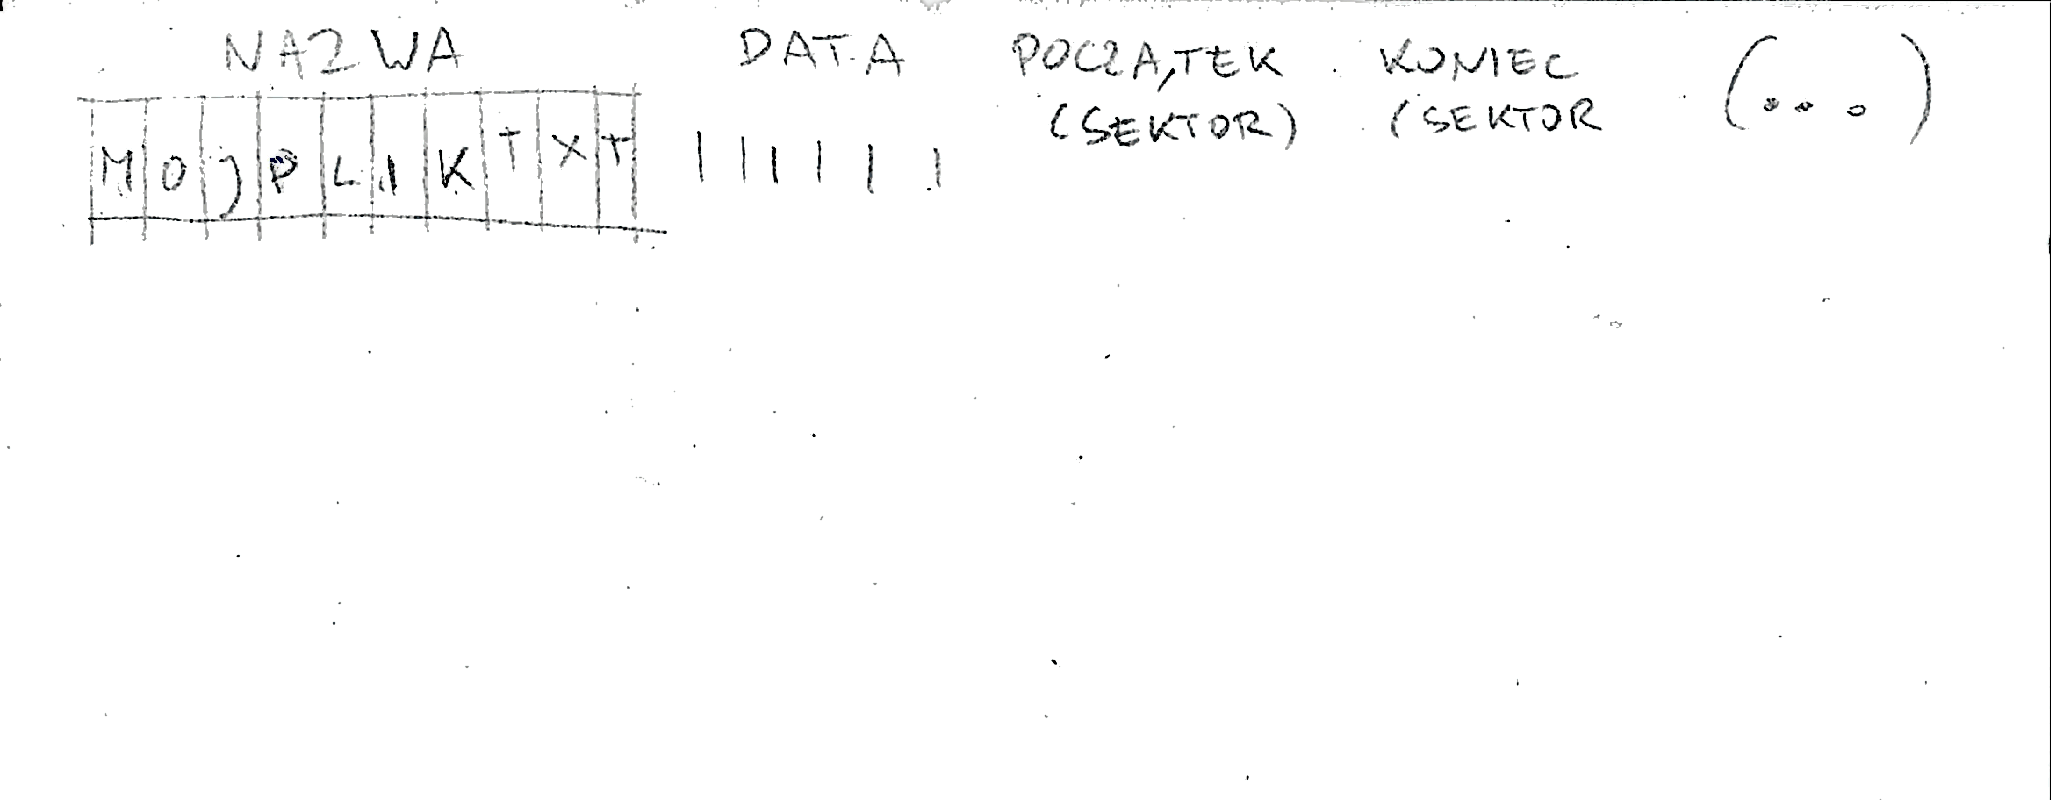 NAZWA DATA POCZĄTEK KONIEC (...)
(SEKTOR) (SEKTOR
MOJPLIKTXT | | | | | |